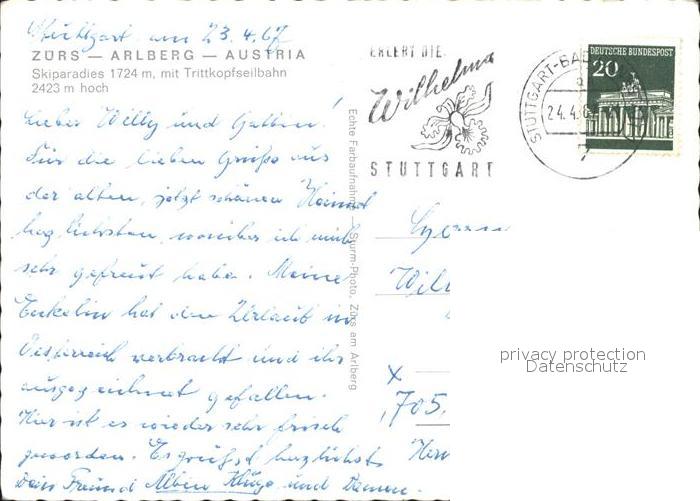 Stuttgart am 23.4.67
ZÜRS — ARLBERG — AUSTRIA
Skiparadies 1724 m, mit Trittkopfseilbahn
2423 m hoch
Lieber Willy und Gattin!
Für die lieben Grüße aus
der alten, jetzt schönen Heimat
herzlichsten, worüber ich mich
sehr gefreut habe. Meine
Enkelin hat den Urlaub in
Österreich verbracht und ihr
ausgezeichnet gefallen.
Hier ist es wieder sehr frisch
geworden. Es grüßt herzlichst
Dein Freund Albin und
Echte Farbaufnahme — Sturm-Photo, Zürs am Arlberg
ERLEBT DIE
Wilhelma
STUTTGART
STUTTGART-BAD
24.4.6
DEUTSCHE BUNDESPOST
20
Wil
X
705
privacy protection
Datenschutz